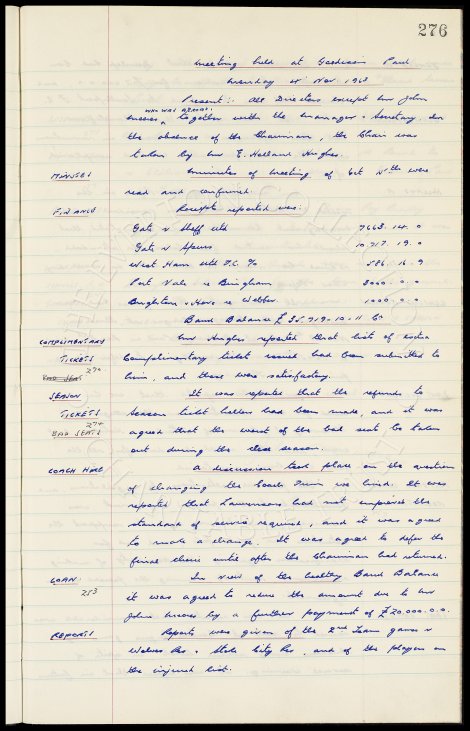 276
Meeting held at Goodison Park
Monday 4th Nov. 1963
Present:- All Directors except Mr John
who was abroad,
Moores together with the Manager & Secretary. In
the absence of the Chairman, the Chair was
taken by Mr E. Holland Hughes.
MINUTES Minutes of Meeting of 6th were
read and confirmed.
FINANCE Receipts reported was:
Gate v Sheff Utd 7663. 14. 0
Gate v Spurs 10.717. 19. 0
West Ham Utd F.C. % 586. 16. 9
Port Vale re Bingham 3000. 0. 0
Brighton & Hove re Webber 1000. 0. 0
Bank Balance £35.719-10-11 Cr
COMPLIMENTARY Mr Hughes reported that lists of extra
TICKETS Complimentary ticket issued had been submitted to
BAD SEAT 274 him, and these were satisfactory.
SEASON It was reported that the refunds to
TICKETS Season ticket holders had been made, and it was
BAD SEATS 274 agreed that the worst of the bad seats be taken
out during the close season.
COACH HIRE A discussion took place on the question
of changing the Coach Firm we hired. It was
reported that Lawrensons had not improved the
standard of service required, and it was agreed
to make a change. It was agreed to defer the
final choice until after the Chairman had returned.
LOAN In view of the healthy Bank Balance
253 it was agreed to reduce the amount due to Mr
John Moores by a further payment of £20.000.0.0.
REPORTS Reports were given of the 2nd Team games v
Wolves Res. & Stoke City Res, and of the players on
the injured list.